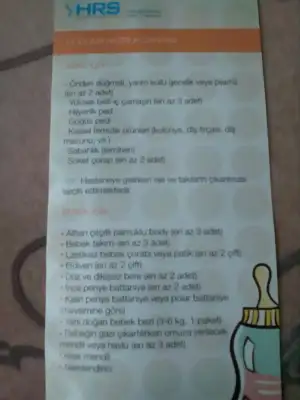 HRS
- Önden düğmeli, yarım kollu gecelik veya pijama
(en az 2 adet)
- Yüksek belli iç çamaşırı (en az 3 adet)
- Hijyenik ped
- Göğüs pedi
- Kişisel temizlik ürünleri (kolonya, diş fırçası, diş
macunu, vs.)
- Sabahlık
- Soket çorap (en az 2 adet)
Hastaneye gelirken oje ve takıların çıkarılması
tercih edilmektedir.
• Alttan çıtçıtlı pamuklu body (en az 3 adet)
• Bebek takımı (en az 3 adet)
• Lastiksiz bebek çorabı veya patik (en az 2 çift)
• Eldiven (en az 2 çift)
• Düz ve dikişsiz bere (en az 2 adet)
• İnce penye battaniye (en az 2 adet)
• Kalın penye battaniye veya polar battaniye
(mevsimine göre)
• Yeni doğan bebek bezi (3-6 kg, 1 paket)
• Bebeğin gazı çıkartılırken omuza serilecek
mendil veya havlu (en az 3 adet)
• Islak mendil
• Nemlendirici